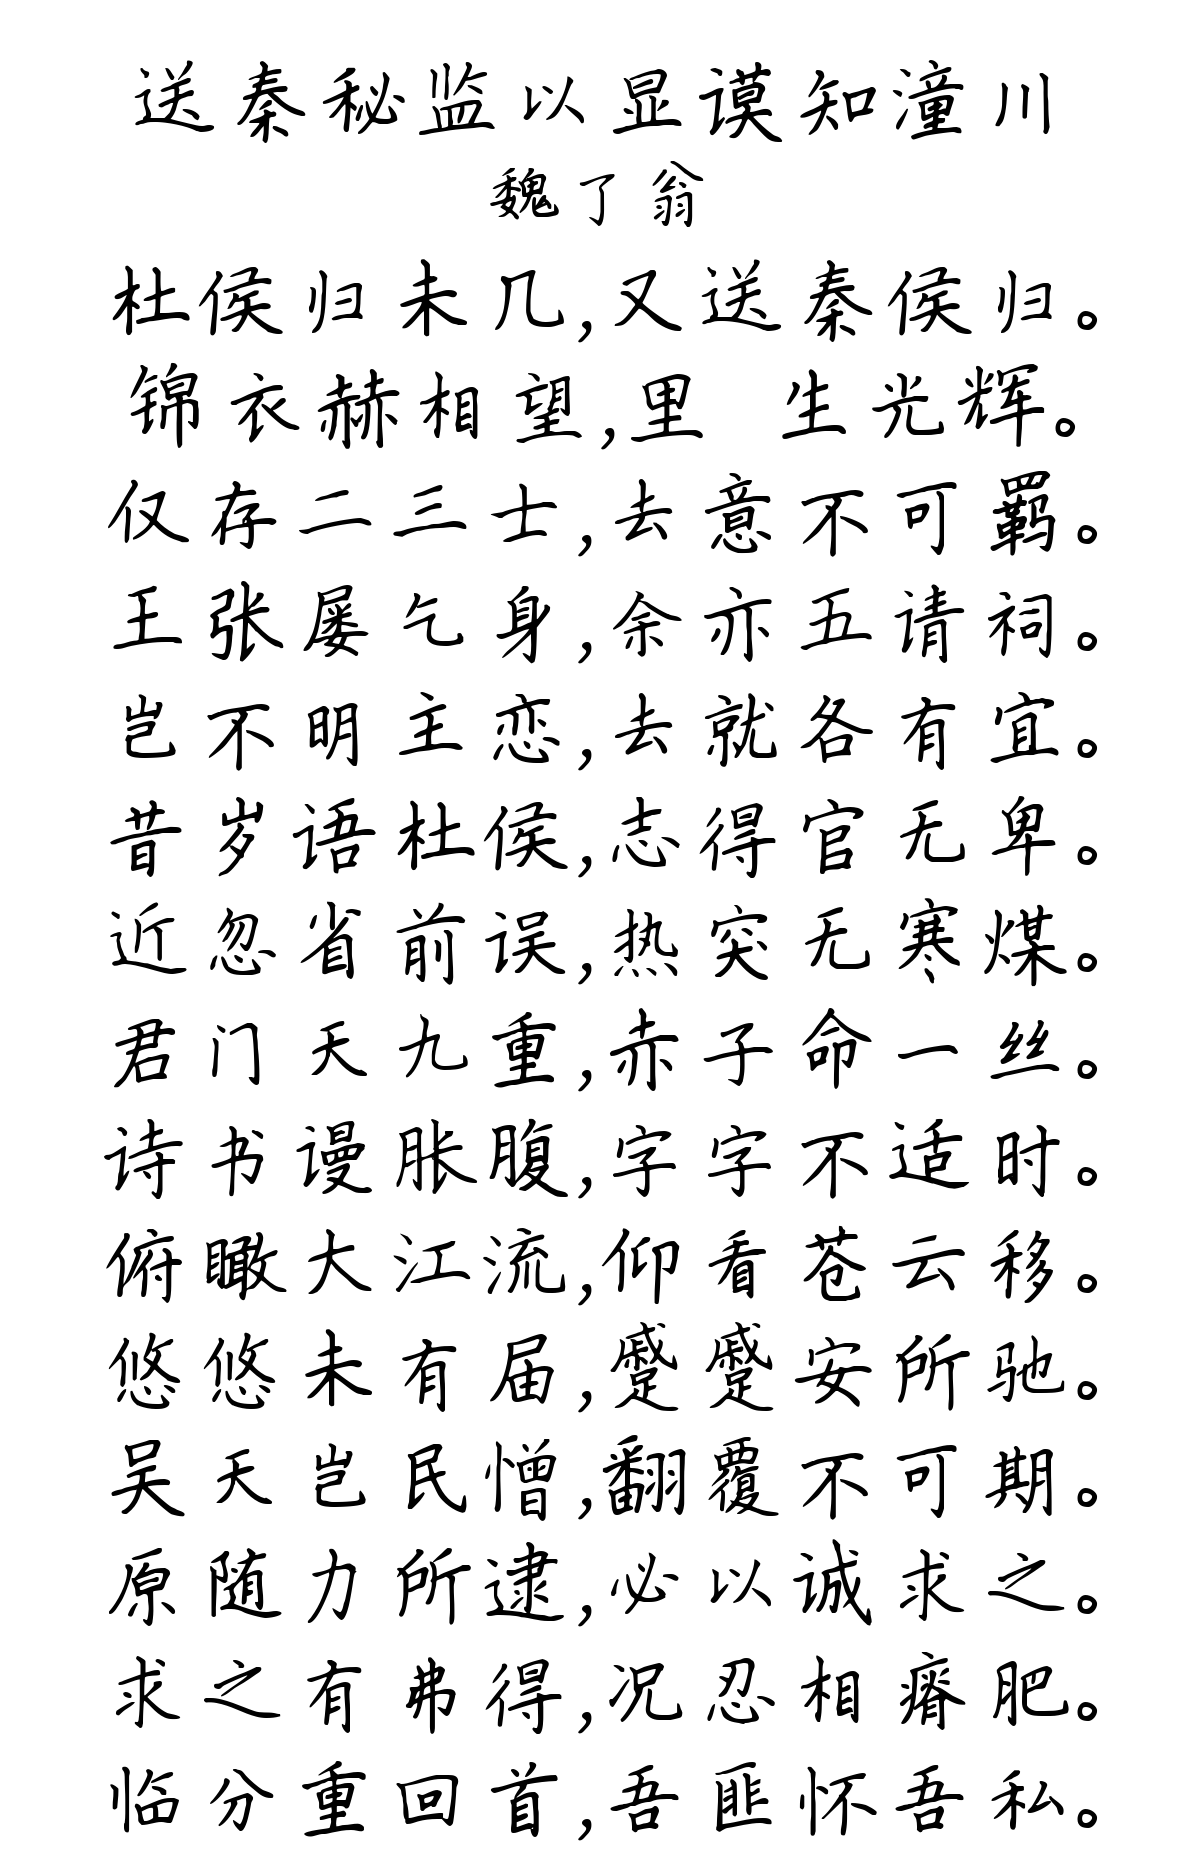 送秦秘监以显谟知潼川
魏了翁
杜侯归未几,又送秦侯归。
锦衣赫相望,里 生光辉。
仅存二三士,去意不可羁。
王张屡乞身,余亦五请祠。
岂不明主恋,去就各有宜。
昔岁语杜侯,志得官无卑。
近忽省前误,热突无寒煤。
君门天九重,赤子命一丝。
诗书谩胀腹,字字不适时。
俯瞰大江流,仰看苍云移。
悠悠未有届,蹙蹙安所驰。
吴天岂民憎,翻覆不可期。
原随力所逮,必以诚求之。
求之有弗得,况忍相瘠肥。
临分重回首,吾匪怀吾私。